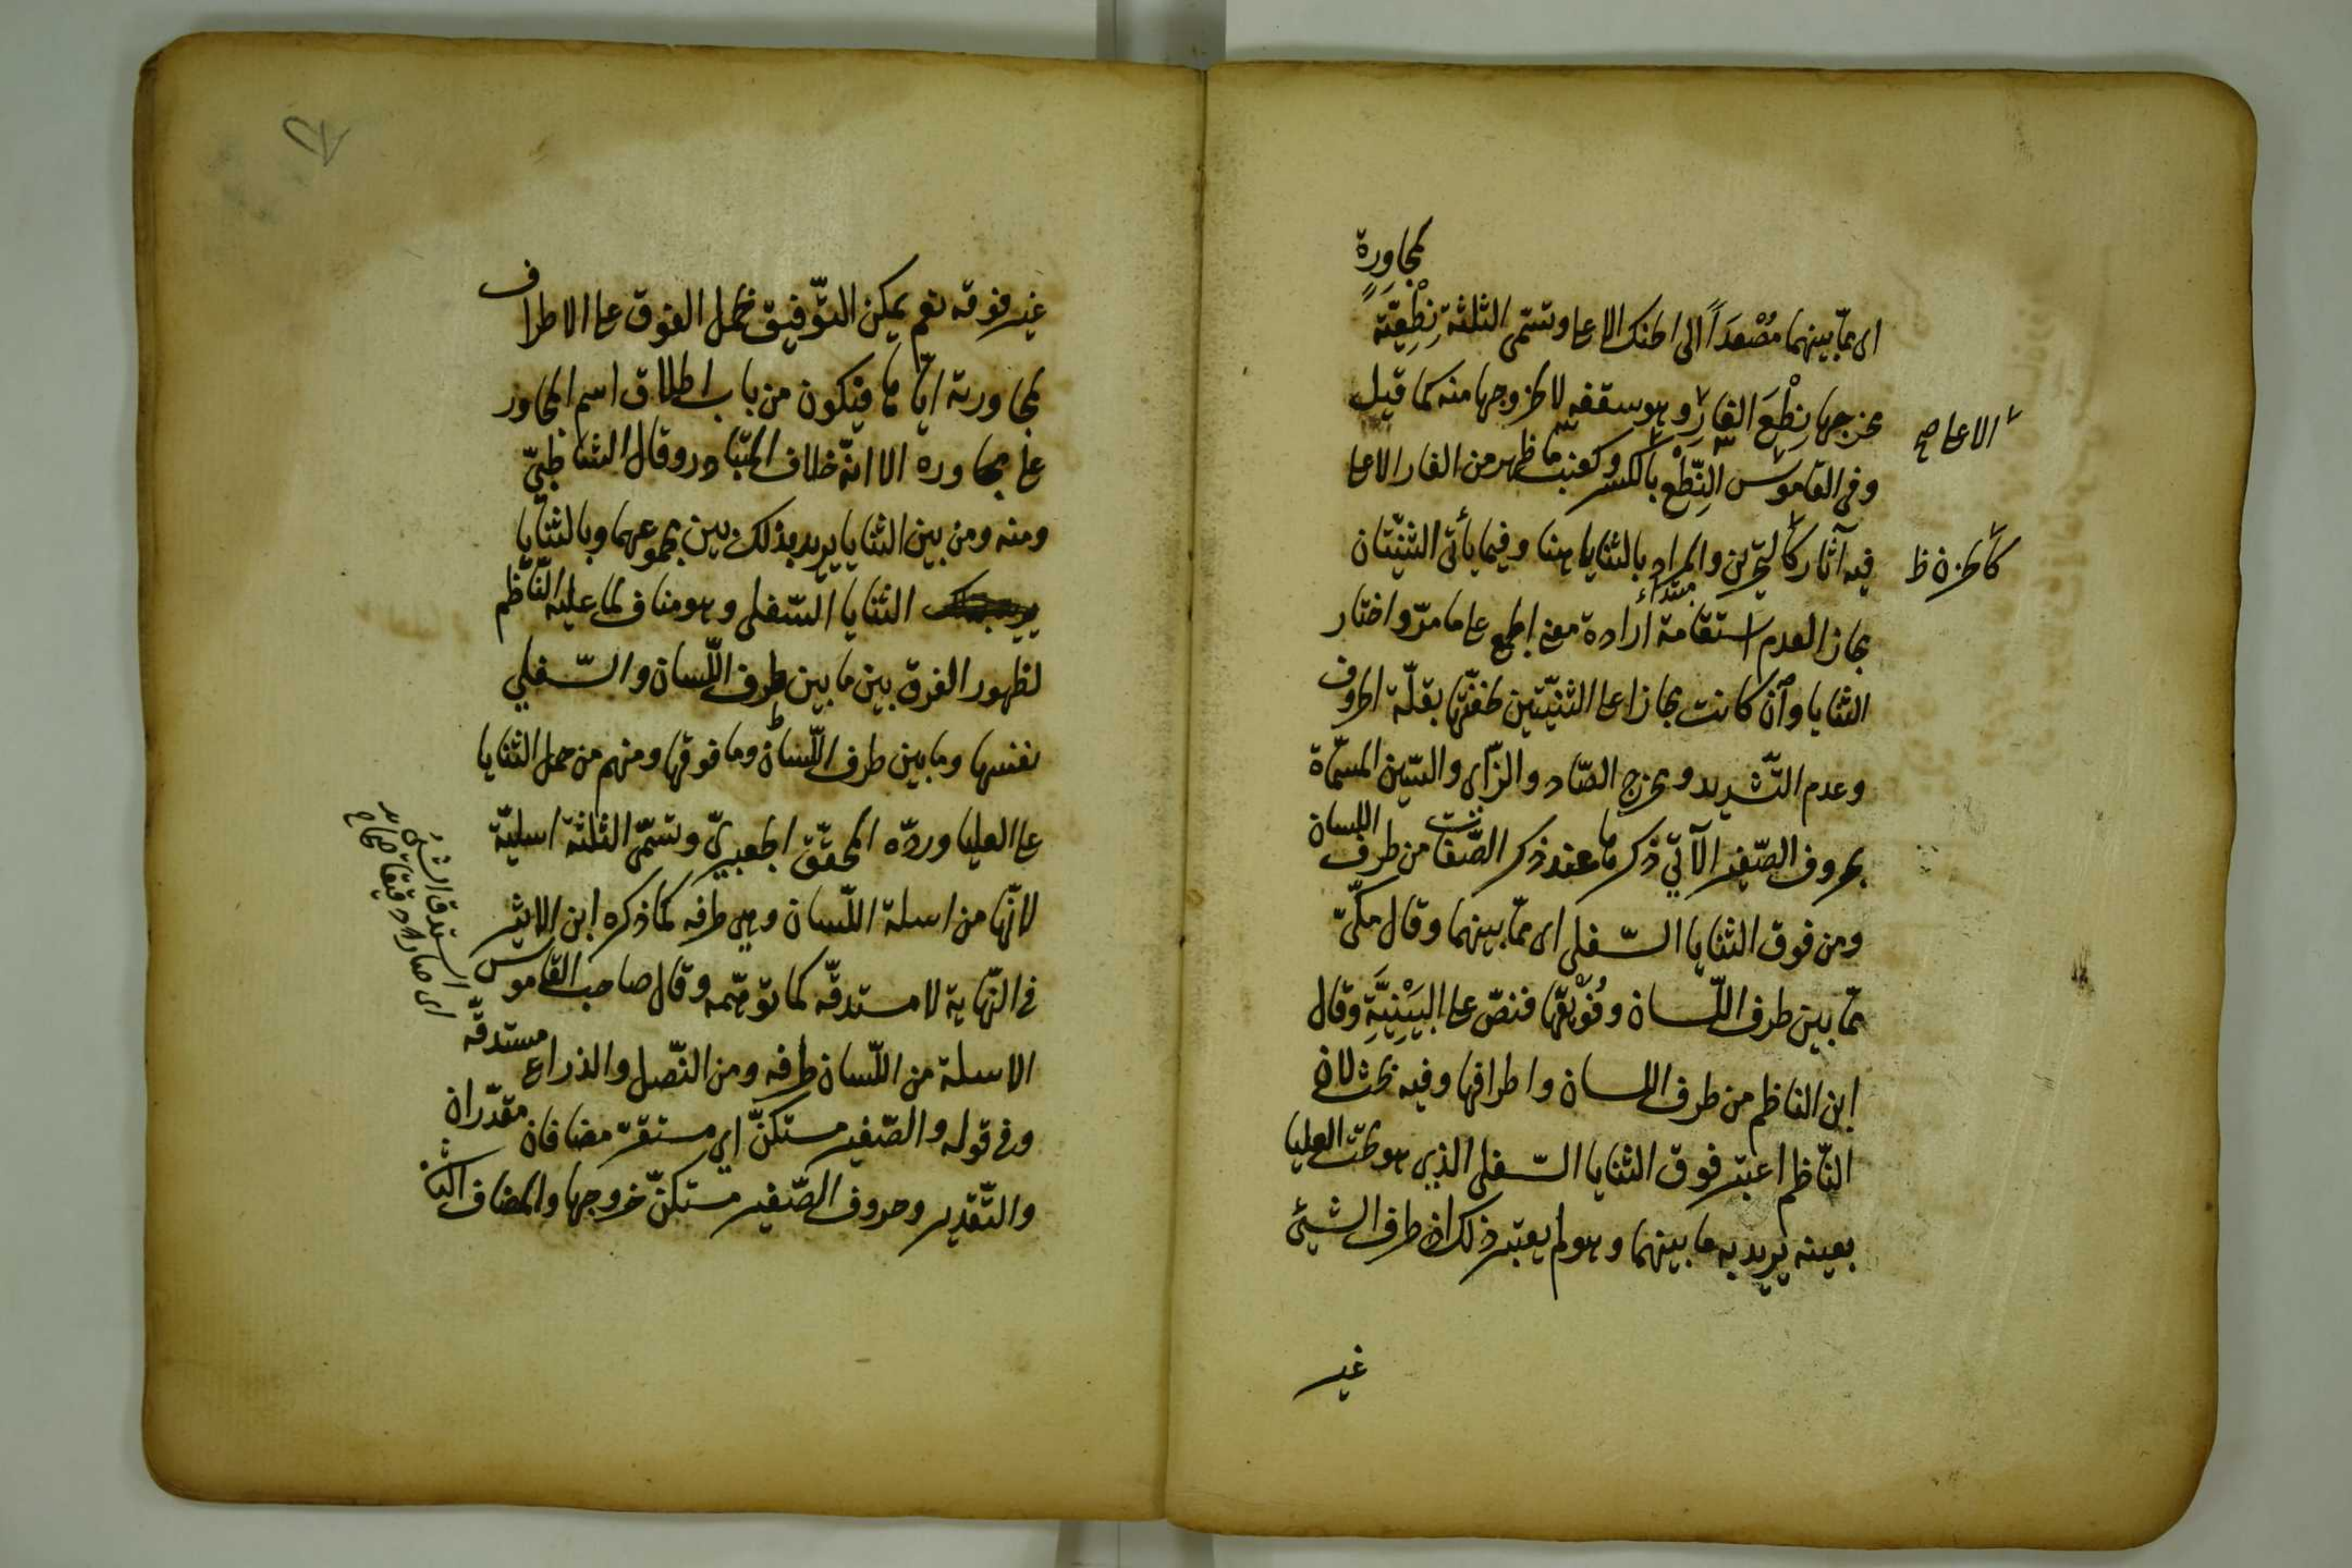 لمجاورة
اى ممّا بينهما مُصْعَداً الى الحنك الاعلى وتسمّى الثلثة نِطْعِيّةً
مخرجها نِطْعَ الغار وهو سقفه لا لخروجها منه كما قيل
وفى القاموس النِّطْع بالكسر وكعنب ما ظهر من الغار الاعلى
فيه آثار كالتحزين والمراد بالثنايا هنا وفيما يأتى الثنيّتان
مجازا لعدم استقامة ارادة معنى الجمع على ما مرّ واختار
الثنايا وان كانت مجازا على الثنيّتين لخفّتها بقلّة الحروف
وعدم التّشديد ومخرج الصّاد والزّاى والسّين المسمّاة
بحروف الصّفير الآتي ذكرها عند ذكر الصّفات من طرف اللسان
ومن فوق الثنايا السّفلى اى ممّا بينهما وقال مكّىّ
ممّا بين طرف اللّسان وفُوَيْقَها فنصّ على البَيْنِيَّةِ وقال
ابن الناظم من طرف اللسان واطرافها وفيه بحث لان
النّاظم اعتبر فوق الثنايا السّفلى الذى هو تحت العليا
بعينه يريد به ما بينهما وهو لم يعتبر ذلك اذ طرف الشيئ
غير
الاعلى صح
كالحزن ظ
مبتداء
غير فوقه نعم يمكن التّوفيق بحمل الفوق على الاطراف
لمجاورته ايّاها فيكون من باب اطلاق اسم المجاور
على مجاوره الا انّه خلاف المتبادر وقال الشاطبيّ
ومنه ومن بين الثنايا يريد بذلك بين مجموعهما وبالثنايا
الثنايا السّفلى وهو مناف لما عليه النّاظم
لظهور الفرق بين ما بين طرف اللّسان والسّفلي
نفسها وما بين طرف اللّسان وما فوقها ومنهم من حمل الثنايا
على العليا وردّه المحقّق الجعبريّ وتسمّى الثلثة اسليّة
لانّها من اسلة اللّسان وهى طرفه كما ذكره ابن الاثير
فى النّهاية لا مستدقّه كما توهّمه وقال صاحب القاموس
الاسلة من اللّسان طرفه ومن النّصل والذراع مستدقّه
وفى قوله والصّفير مستكنّ اى مستقرّ مضافان مقدّران
والتّقدير وحروف الصّفير مستكنّ خروجها والمضاف الثا
استدقّ الشئ
اى صار دقيقا صحاح